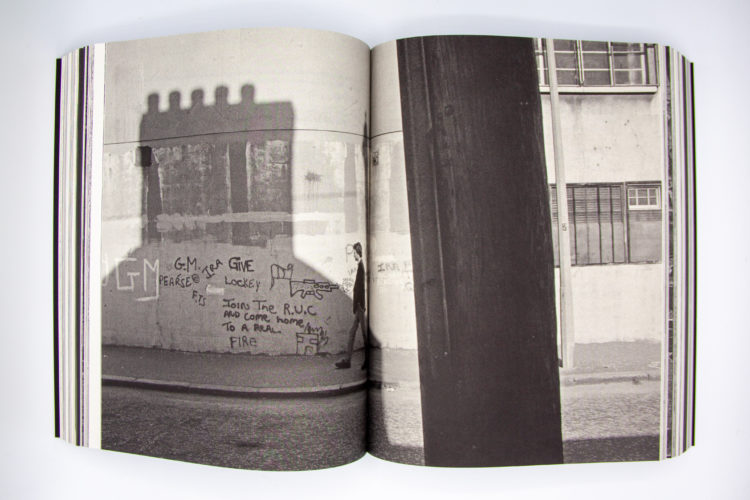 UGM
G.M. IRA GIVE
PEARSE LOCKEY
F.T.S
JOIN THE R.U.C
AND COME HOME
TO A REAL
FIRE
IRA